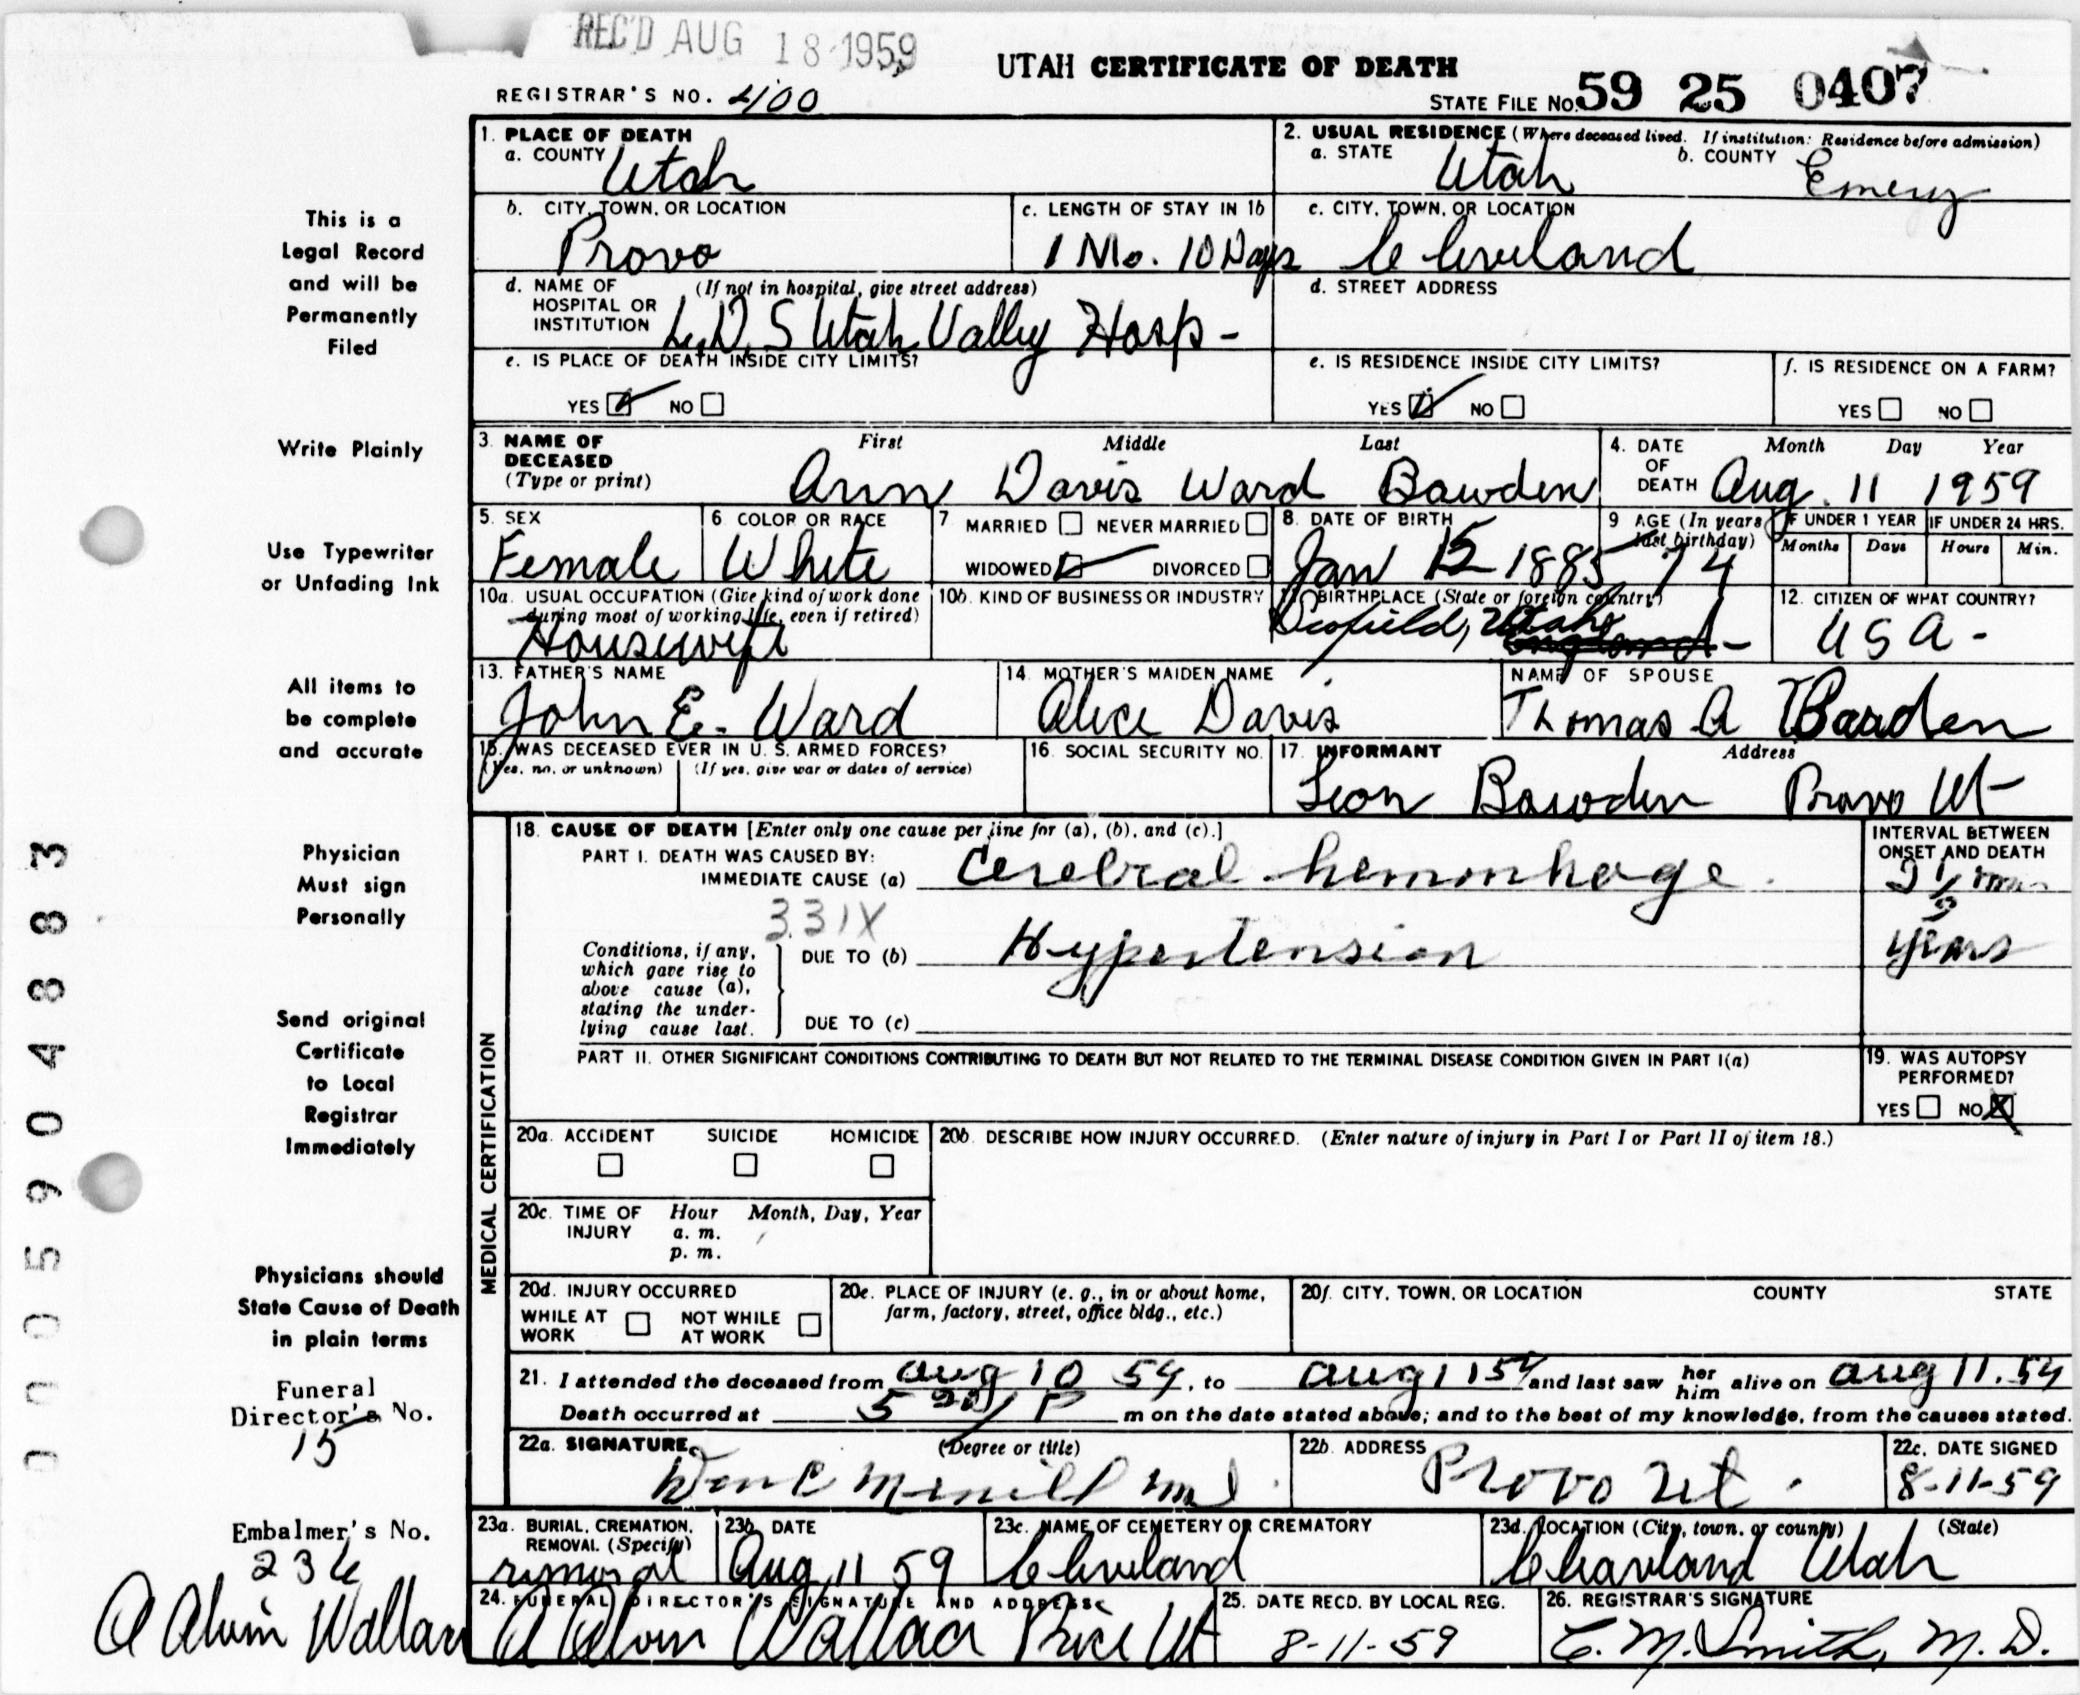 REC'D AUG 18 1959
UTAH CERTIFICATE OF DEATH
REGISTRAR'S NO. 400
STATE FILE NO. 59 25 0407
This is a
Legal Record
and will be
Permanently
Filed
Write Plainly
Use Typewriter
or Unfading Ink
All items to
be complete
and accurate
Physician
Must sign
Personally
Send original
Certificate
to Local
Registrar
Immediately
Physicians should
State Cause of Death
in plain terms
Funeral
Director's No.
15
Embalmer's No.
236
A Alvin Wallace
000590488 3
1. PLACE OF DEATH
a. COUNTY Utah
2. USUAL RESIDENCE (Where deceased lived. If institution: Residence before admission)
a. STATE Utah b. COUNTY Emery
b. CITY, TOWN, OR LOCATION Provo
c. LENGTH OF STAY IN 1b 1 Mo. 10 Days
c. CITY, TOWN, OR LOCATION Cleveland
d. NAME OF HOSPITAL OR INSTITUTION (If not in hospital, give street address) L.D.S Utah Valley Hosp-
d. STREET ADDRESS
e. IS PLACE OF DEATH INSIDE CITY LIMITS?
YES NO
e. IS RESIDENCE INSIDE CITY LIMITS?
YES NO
f. IS RESIDENCE ON A FARM?
YES NO
3. NAME OF DECEASED (Type or print) First Middle Last
Ann Davis Ward Bowden
4. DATE OF DEATH Month Day Year
Aug. 11 1959
5. SEX Female
6 COLOR OR RACE White
7 MARRIED NEVER MARRIED
WIDOWED DIVORCED
8. DATE OF BIRTH Jan 15 1885
9 AGE (In years last birthday) 74
IF UNDER 1 YEAR Months Days
IF UNDER 24 HRS. Hours Min.
10a. USUAL OCCUPATION (Give kind of work done during most of working life, even if retired)
Housewife
10b. KIND OF BUSINESS OR INDUSTRY
11. BIRTHPLACE (State or foreign country)
Scofield, Utah England-
12. CITIZEN OF WHAT COUNTRY?
USA-
13. FATHER'S NAME John E. Ward
14. MOTHER'S MAIDEN NAME Alice Davis
NAME OF SPOUSE Thomas A Bowden
15. WAS DECEASED EVER IN U. S. ARMED FORCES?
(Yes, no, or unknown) (If yes, give war or dates of service)
16. SOCIAL SECURITY NO.
17. INFORMANT Address
Leon Bowden Provo Ut
MEDICAL CERTIFICATION
18. CAUSE OF DEATH [Enter only one cause per line for (a), (b), and (c).]
INTERVAL BETWEEN ONSET AND DEATH
PART I. DEATH WAS CAUSED BY:
IMMEDIATE CAUSE (a) Cerebral hemorrhage
331X
Conditions, if any, which gave rise to above cause (a), stating the underlying cause last.
DUE TO (b) Hypertension years
DUE TO (c)
PART II. OTHER SIGNIFICANT CONDITIONS CONTRIBUTING TO DEATH BUT NOT RELATED TO THE TERMINAL DISEASE CONDITION GIVEN IN PART I(a)
19. WAS AUTOPSY PERFORMED?
YES NO X
20a. ACCIDENT SUICIDE HOMICIDE
20b. DESCRIBE HOW INJURY OCCURRED. (Enter nature of injury in Part I or Part II of item 18.)
20c. TIME OF INJURY Hour a. m. p. m. Month, Day, Year
20d. INJURY OCCURRED
WHILE AT WORK NOT WHILE AT WORK
20e. PLACE OF INJURY (e. g., in or about home, farm, factory, street, office bldg., etc.)
20f. CITY, TOWN, OR LOCATION COUNTY STATE
21. I attended the deceased from Aug 10 59, to Aug 11 59 and last saw her him alive on Aug 11. 59
Death occurred at 5 20/P m on the date stated above; and to the best of my knowledge, from the causes stated.
22a. SIGNATURE (Degree or title)
22b. ADDRESS Provo Ut.
22c. DATE SIGNED 8-11-59
23a. BURIAL, CREMATION, REMOVAL. (Specify) removal
23b. DATE Aug, 11 59
23c. NAME OF CEMETERY OR CREMATORY Cleveland
23d. LOCATION (City, town, or county) (State) Cleaveland Utah
24. FUNERAL DIRECTOR'S SIGNATURE AND ADDRESS
A Alvin Wallace Price Ut
25. DATE RECD. BY LOCAL REG. 8-11-59
26. REGISTRAR'S SIGNATURE C. M. Smith, M. D.